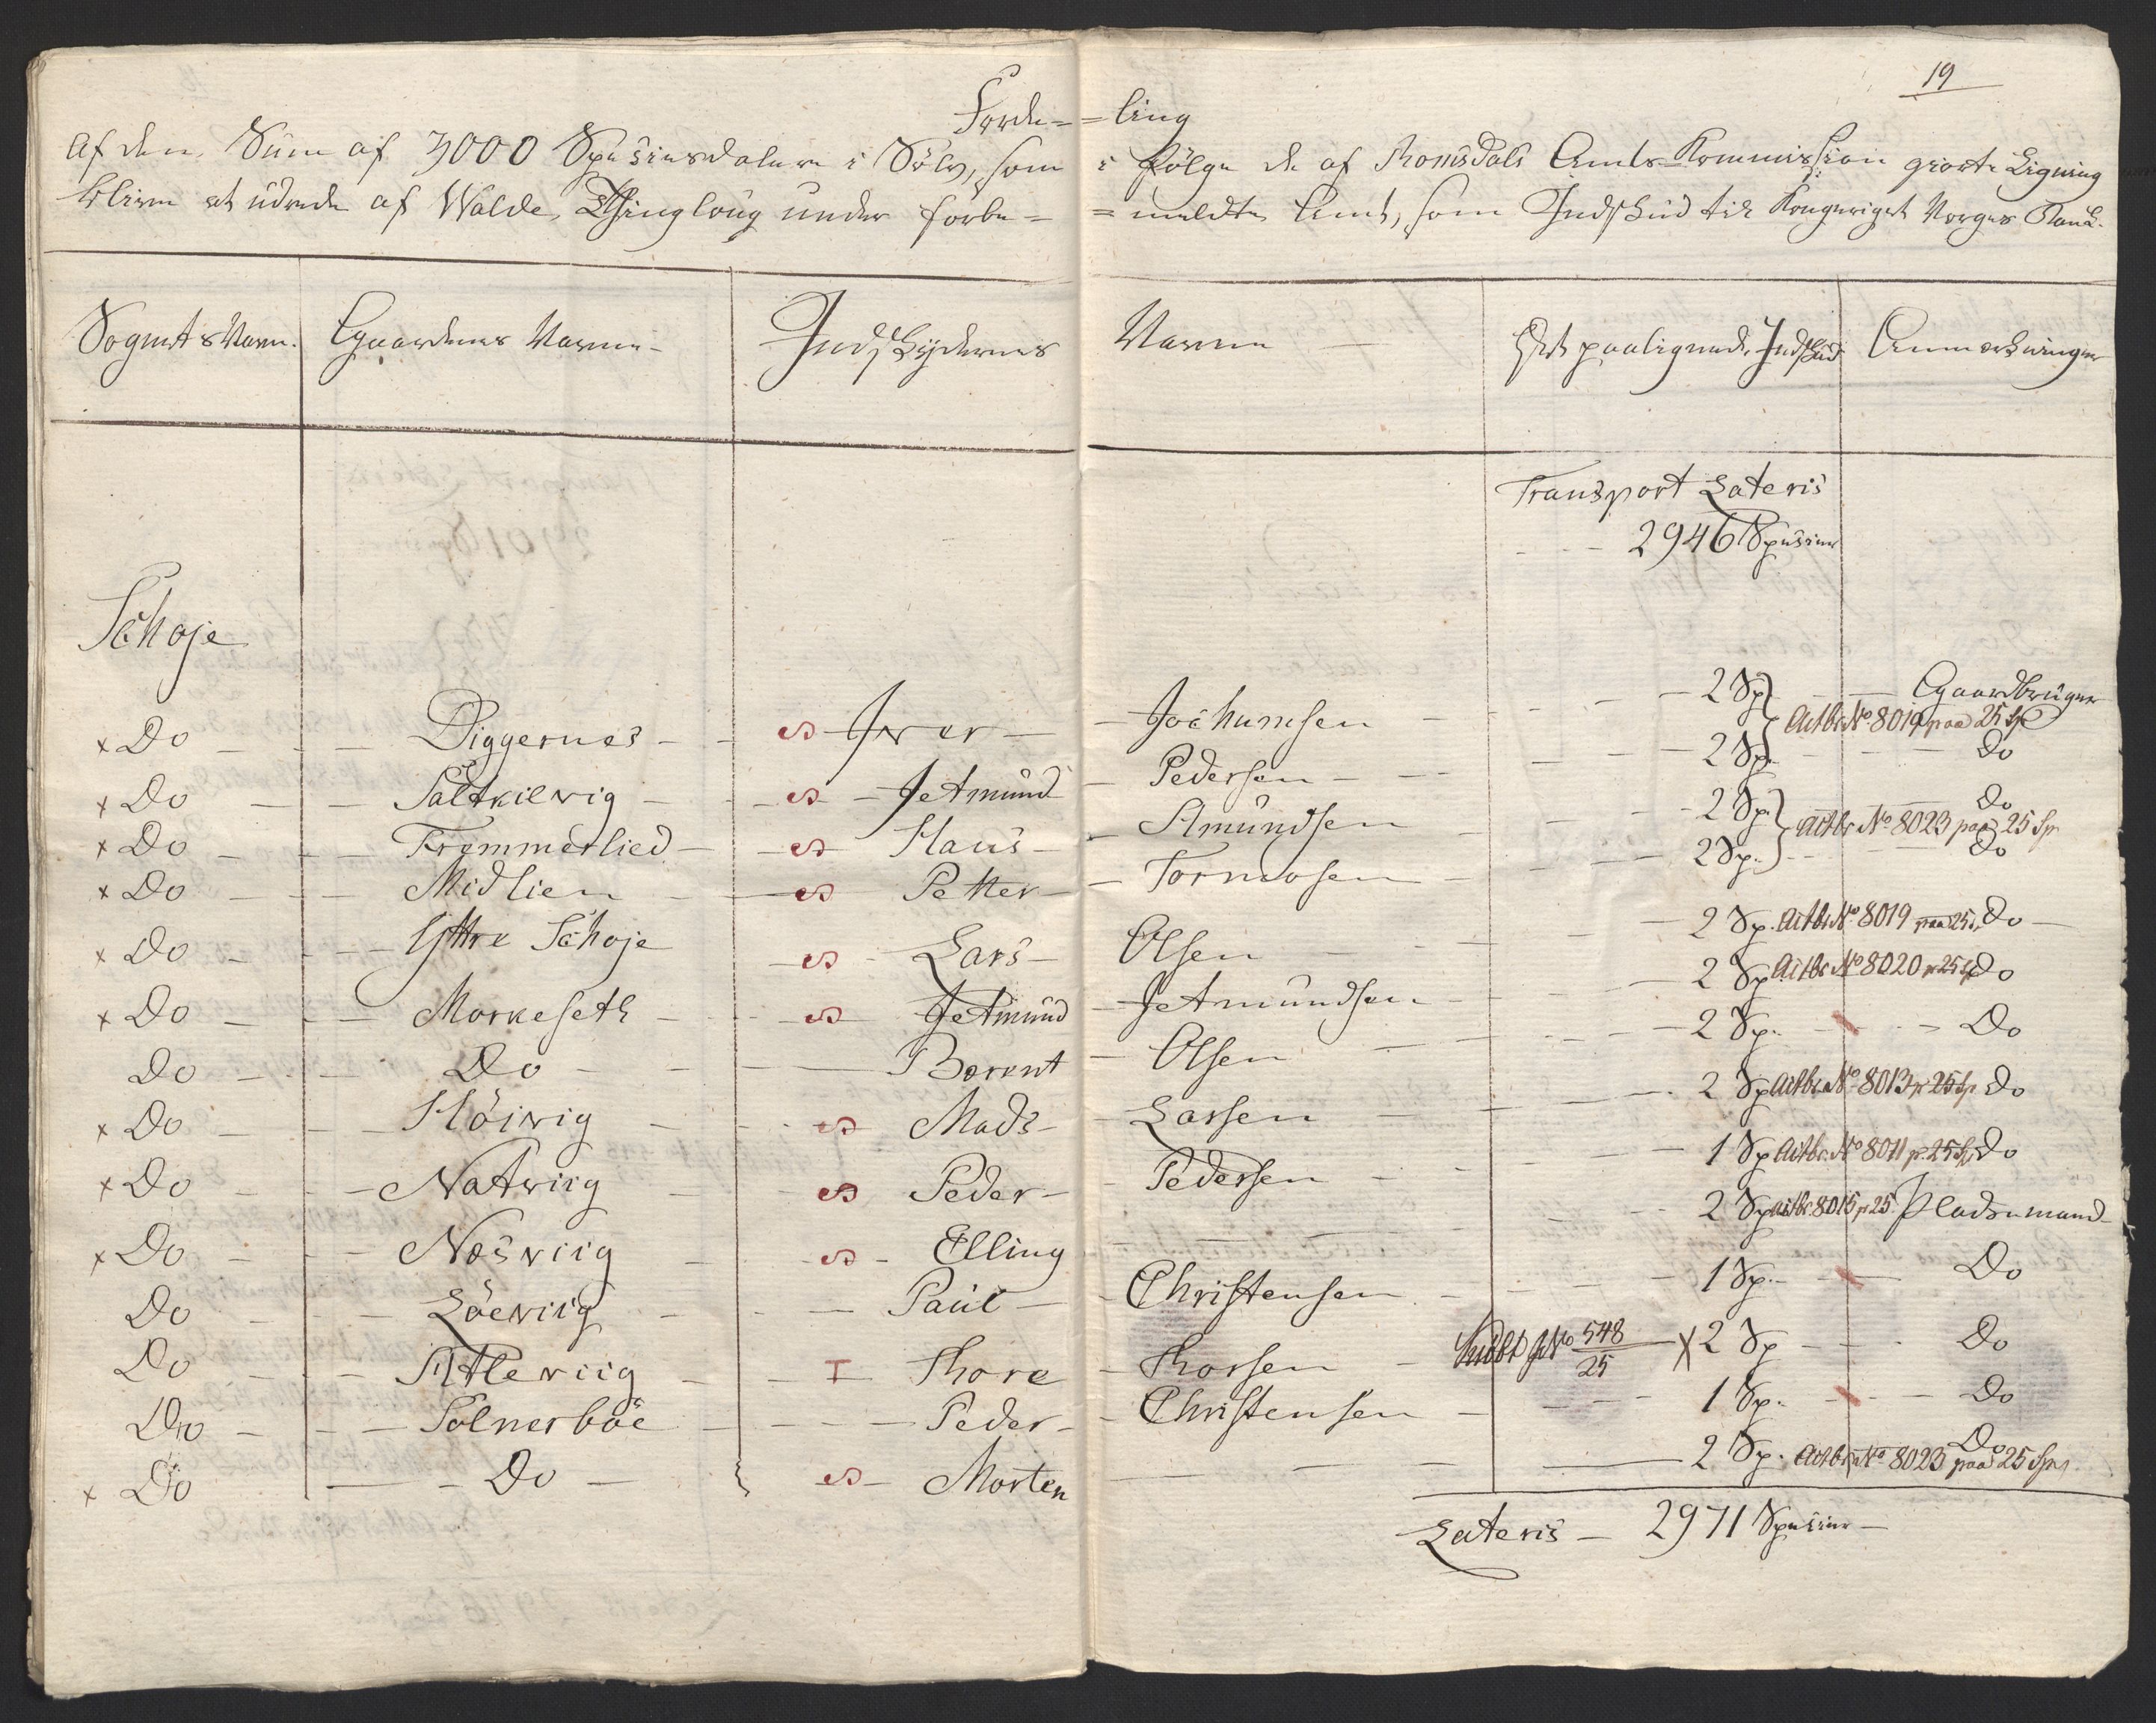 19
Forde= =ling
Af den Sum af 3000 Speciesdalere i Sølv, som i følge de af Romsdals Amts Kommission giorte Ligning
bliver at udrede af Walde Thinglaug under forbe= =meldte Amt, som Indskud til Kongeriget Norges Bank.
Sognets Navn. Gaardenes Navne - Indskydernes Navne - Det paalignede Indskud Anmærkninger
Transport Lateris
2946 Species
Schoje
x Do - Diggernes - Iver - Jochumsen - 2 Sp. - Gaardbruger
Actbr. No 8019 paa 25 Sp
x Do - Saltkilvig - Jetmund - Pedersen - 2 Sp. - Do
x Do - Fremmerlied - Hans - Amundsen - 2 Sp. - Do
Actbr. No 8023 paa 25 Sp
x Do - Midlien - Petter - Tormosen - 2 Sp. - Do
x Do - Yttre Schoje - Lars - Olsen - 2 Sp. Actbr. No 8019 paa 25 Do
x Do - Morkeseth - Jetmund - Jetmundsen - 2 Sp. Actbr. No 8020 p 25 Sp Do
Do - Do - Barent - Olsen - 2 Sp. - Do
x Do - Höivig - Mads - Larsen - 2 Sp. Actbr. No 8013 p 25 Sp. Do
x Do - Natviig - Peder - Pedersen - 1 Sp. Actbr. No 8011 p. 25 Sp Do
x Do - Næsviig - Elling - 2 Sp. actbr. 8015 p 25. Pladsemand
Do - Löeviig - Paul - Christensen - 1 Sp. - Do
Do - Atleviig - I Thore - Thorsen - No 548/25 - x 2 Sp - Do
Do - Solnerböe - Peder - Christensen - 1 Sp. - Do
x Do - Do - Morten - 2 Sp. - Do
Actbr. No 8023 paa 25 Sp.
Lateris - 2971 Species -